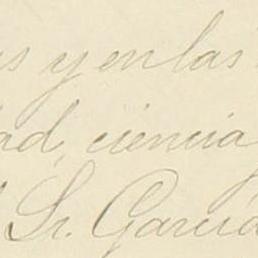 y en las
ad, ciencia
Sr. García